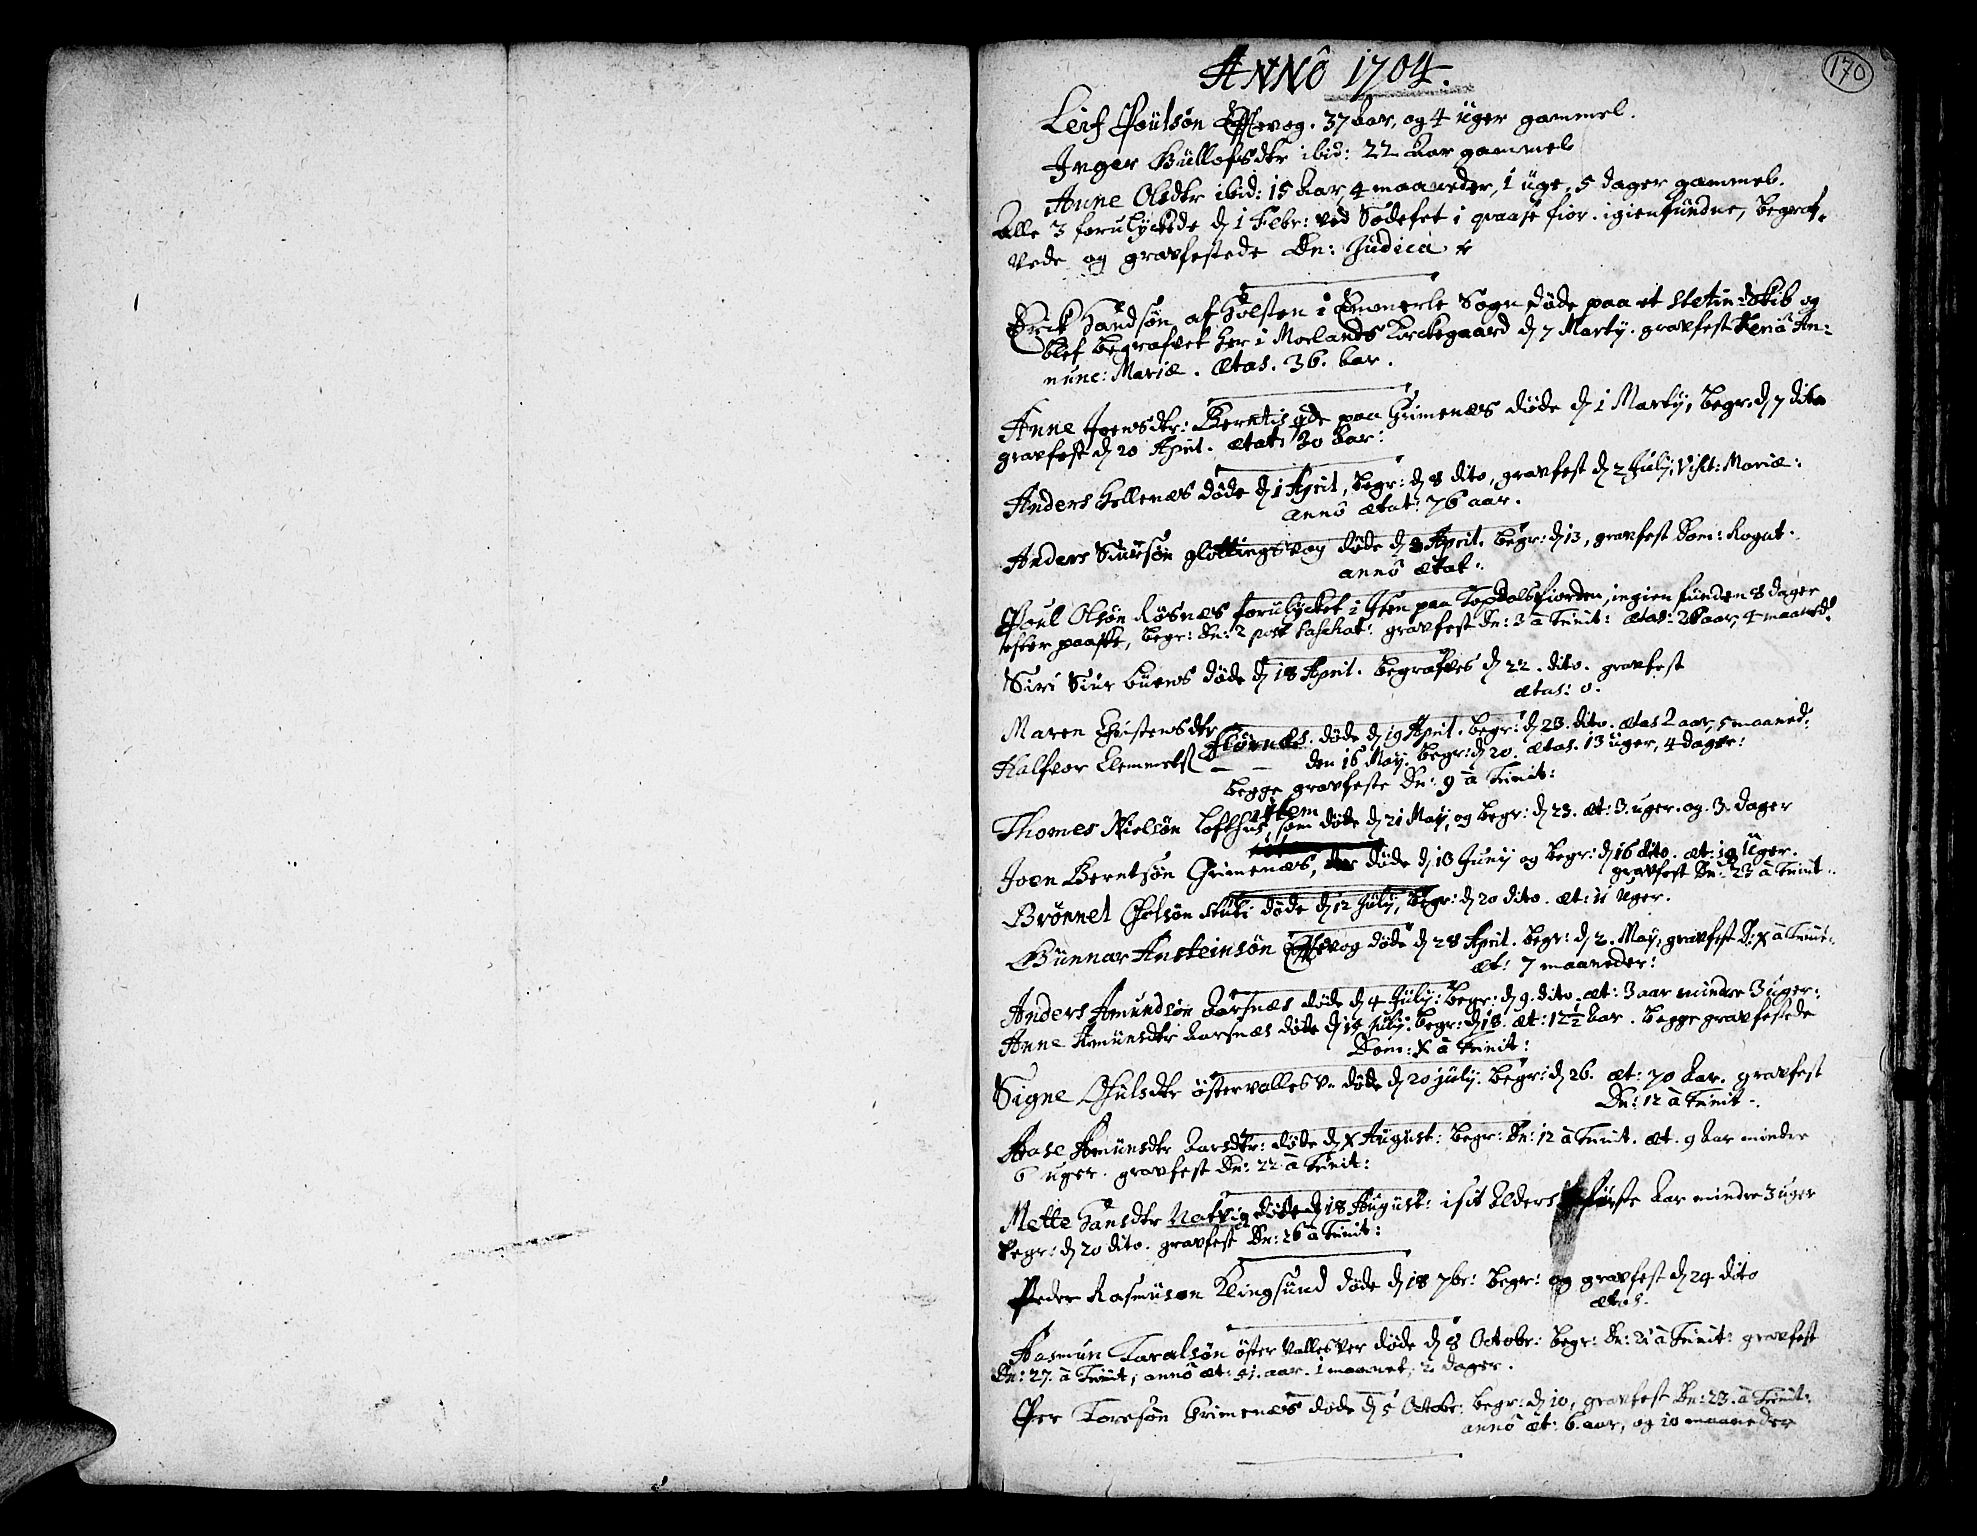 170
ANNÔ 1704.
Leif Poülsøn Effevog. 37 aar, og 4 uger gammel.
Inger Güllofsdtr ibid: 22 aar gammel
Anne Olsdtr ibid: 15 aar, 4 maaneder, 1 uge, 5 dager gammel.
Alle 3 forulyckede d 1 Febr: ved Sodefet i qvaase fior. igienfundne, begraf-
vede og gravfestede Dn: Judica
Erik Handsøn af Holsten i Emmerle Sogn døde paa et Stetin: Skib og
blef begrafvet her i Morlands Kirckegaard d 7 Martij. gravfest An-
nunc: Mariæ. Ætas. 36. aar.
Anne Joensdtr: Berntis paa Grimenæs døde d 1 Martij, begr: d 7 dito
gravfest d 20 April. ætat: 30 aar:
Anders Hellenæs døde d 1 April, begr: d 8 dito, gravfest d 2 Julij, Visit: Mariæ:
annô ætat: 76 aar.
Anders Siursøn glottingsvog døde d 8 April. begr: d 13, gravfest Dom: Rogat:
annô ætat:
Poul Olsøn Røsnæs forulycket i Isen paa Topdalsfiorden, igien funden 8 dager
efter paaske, begr: Dn: 2 post Paschat: gravfest Dn: 3 à Trinit: ætas: 28 aar, 4 maaned:
Siri Siur Buens døde d 18 April. begrafves d 22. dito. gravfest
ætas: 0.
Maren Christensdtr Flørnæs. døde d 19 April. begr: d 23. dito. ætas 2 aar, 5 maaned:
Halfvor Clemmets — — den 16 May. begr: d 20. ætas. 13 uger, 4 dager:
begge gravfeste Dn: 9 à Trinit:
Thomes Nielsøn Lofthus, som døde d 21 May, og begr: d 23. æt: 3. uger. og. 3. dager
Joen Berntsøn Grimenæs, døde d 13 Junij og begr: d 16 dito. æt: 19 Uger.
gravfest Dn: 23 à Trinit:
Brønnel Olsøn Stubi døde d 12 Julij, begr: d 20 dito. æt: 11 Uger.
Gunnar Ansteinsøn Effevog døde d 28 April. begr: d 2. May, gravfest D: X à Trinit:
æt: 7 maaneder:
Anders Amundsøn Aarsnæs døde d 4 Julij: begr: d 9. dito. æt: 3 aar mindre 3 uger:
Anne Amünsdtr Aarsnæs døde d 14 Julij. begr: d 18. æt: 12½ aar. begge gravfestede
Dom: X à Trinit:
Signe Olsdtr østervallesv. døde d 20 Julij. begr: d 26. æt: 70 aar. gravfest
Dn: 12 à Trinit.
Aase Amünsdtr døde d X August: begr: Dn: 12 à Trinit. æt. 9 aar mindre
6 uger. gravfest Dn: 22 à Trinit:
Mette Hansdtr Natvig døde d 18 August: i sit Alders første Aar mindre 3 uger
begr: d 20 dito. gravfest Dn: 26 à Trinit:
Peder Rasmusøn Klingsund døde d 18 7br: begr: og gravfest d 24 dito
ætas.
Aasmun Taralsøn øster Vallesver døde d 8 Octobr: begr: Dn: 21 à Trinit: gravfest
Dn: 27. à Trinit, annô æt: 41. aar. 1 maanet, 2. dager.
Peer Toresøn Grimenæs døde d 5 Octobr. begr: d 10, gravfest Dn: 23. à Trinit:
annô æt: 6. aar, og 10 maaneder